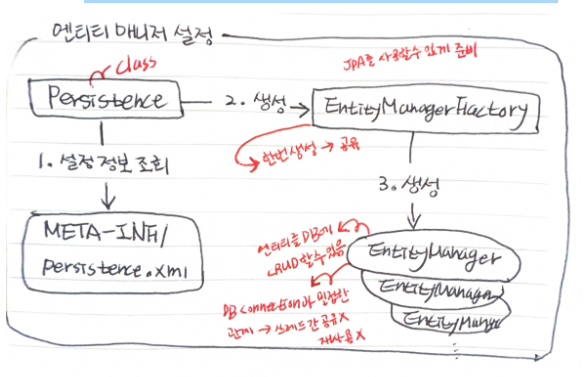 엔티티 매니저 설정
class
JPA를 사용할수 있게 준비
Persistence
2. 생성
EntityManagerFactory
한번생성 → 공유
1. 설정 정보 조회
3. 생성
META-INF/
persistence.xml
엔티티를 DB에
CRUD 할수있음
EntityManager
EntityManager
EntityManager
DB Connection과 밀접한
관계 → 쓰레드간 공유X
재사용X